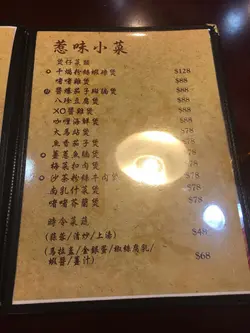 惹味小菜
煲仔菜類
干燒粉絲蝦球煲 $128
啫啫雞煲 $88
醬爆茄子肉鬆煲 $88
八珍豆腐煲 $88
XO醬雞煲 $88
咖喱海鮮煲 $88
大馬站煲 $78
魚香茄子煲 $78
薑蔥魚腩煲 $78
梅菜扣肉煲 $78
沙茶粉絲牛肉煲 $78
南乳什菜煲 $78
啫啫芥蘭煲 $78
時令菜蔬
(蒜蓉/清炒/上湯) $48
(馬拉盞/金銀蛋/椒絲腐乳/ $68
蝦醬/薑汁)